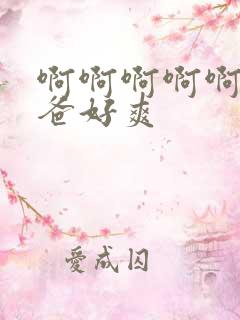 啊啊啊啊啊
爸好爽
愛成囚